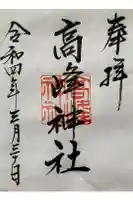 奉拝
高峰神社
令和四年三月三日